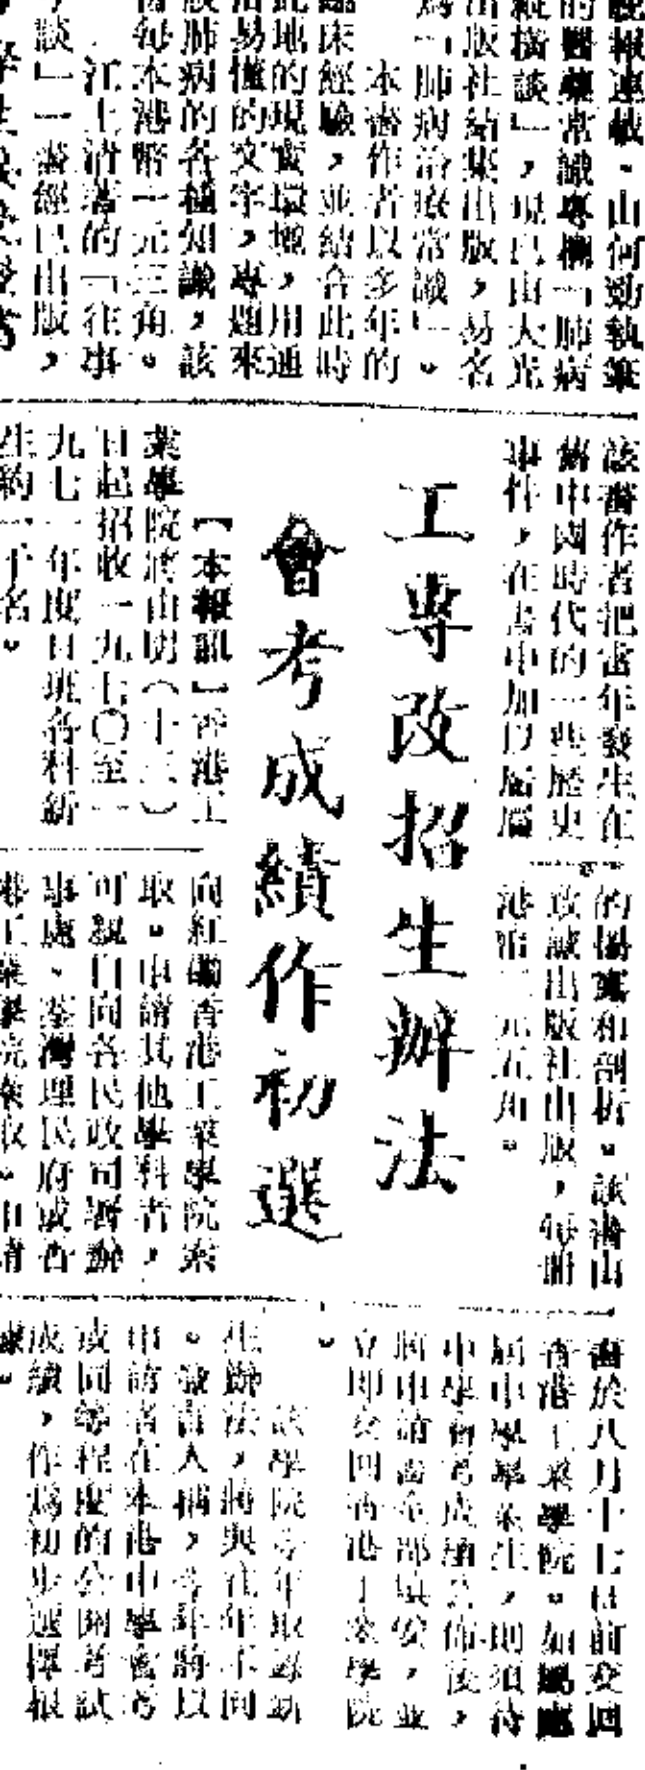 晚報連載、由何勁執筆
的醫藥常識專欄「肺病
縱橫談」，現已由大光
出版社結集出版，易名
為「肺病治療常識」。
本書作者以多年的
臨床經驗，並結合此時
此地的現實環境，用通
俗易懂的文字，專題來
談肺病的各種知識，該
書每本港幣一元三角。
江上清著的「往事
談」一書經已出版，
該書作者把當年發生在
舊中國時代的一些歷史
事件，在書中加以
的揭露和剖析。該書由
致誠出版社出版，每冊
港幣二元五角。
工專改招生辦法
會考成績作初選
【本報訊】香港工
業學院將由明（十三）
日起招收一九七〇至一
九七一年度日班各科新
生約一千名。
向紅磡香港工業學院索
取。申請其他學科者，
可親自向各民政司署辦
事處、荃灣理民府或香
港工業學院索取。申請
書於八月十七日前交回
香港工業學院。如屬應
屆中學畢業生，則須待
中學會考成績公佈後，
將申請書全部填妥，並
立即交回香港工業學院
。
該學院今年取錄新
生辦法，將與往年不同
。發言人稱，今年將以
申請者在本港中學會考
或同等程度的公開考試
成績，作為初步選擇根
據。